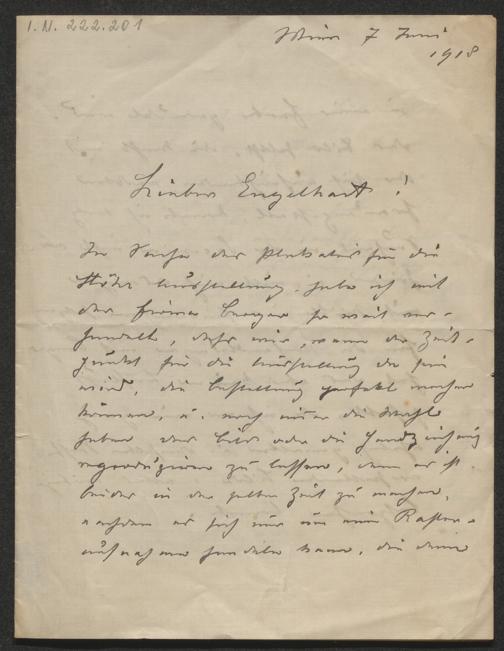 I.N. 222.201
Wien 7 Juni
1918
Lieber Engelhart!
In Sache des Plakates für die
Ausstellung habe ich mit
der Firma Berger so weit ver-
handelt, dass wir, wenn der Zeit-
punkt für die Ausstellung da sein
wird, die Bestellung perfekt machen
können, u. noch immer die Wahl
haben das Bild oder die Handzeichnung
reproduzieren zu lassen, denn es ist
beides in der selben Zeit zu machen,
nachdem es sich nur um eine Raster-
aufnahme handeln kann, die dann